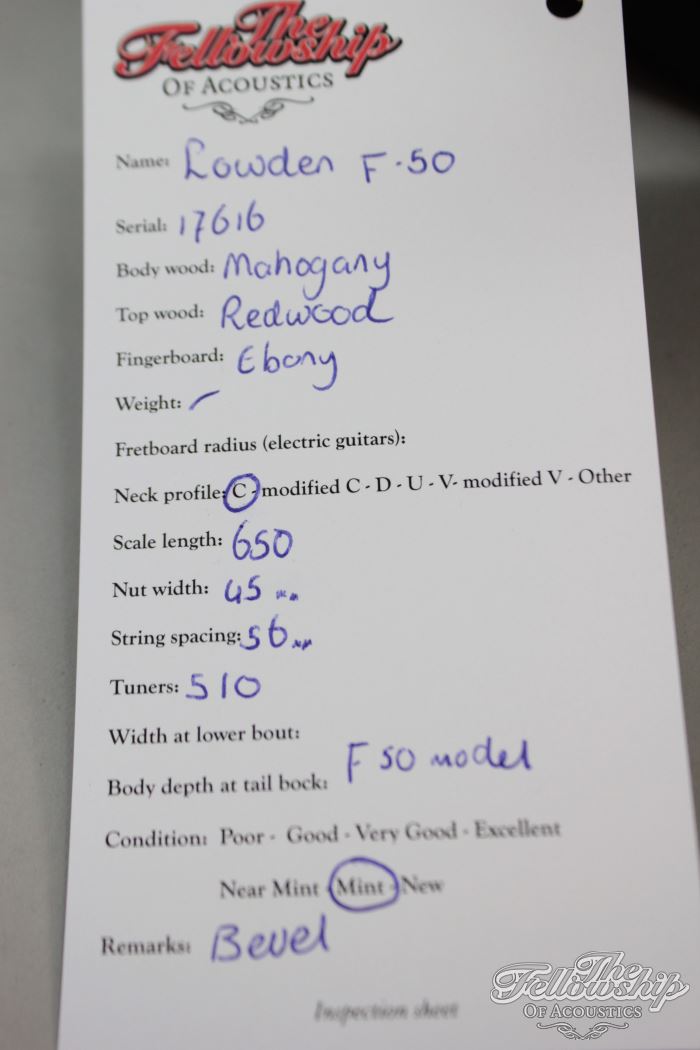 The
Fellowship
OF ACOUSTICS
Name: Lowden F-50
Serial: 17616
Body wood: Mahogany
Top wood: Redwood
Fingerboard: Ebony
Weight: -
Fretboard radius (electric guitars):
Neck profile: C - modified C - D - U - V- modified V - Other
Scale length: 650
Nut width: 45 mm
String spacing: 56 mm
Tuners: 510
Width at lower bout:
F 50 model
Body depth at tail bock:
Condition: Poor - Good - Very Good - Excellent
Near Mint - Mint - New
Remarks: Bevel
Inspection sheet
The
Fellowship
OF ACOUSTICS